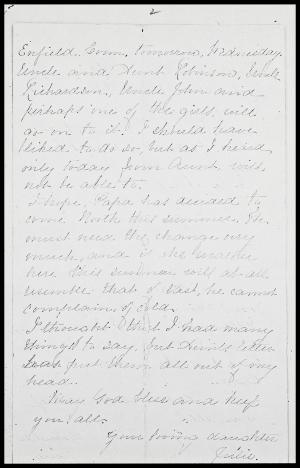 2
Enfield. Conn, tomorrow, Wednesday.
Uncle and Aunt Robinson, Uncle
Richardson, Uncle John and
perhaps one of the girls, will
go on to it. I should have
liked to do so, but as I heard
only today from Aunt, will
not be able to.
I hope Papa has decided to
come North this summer. He
must need the change very
much, and if the weather
here this summer will at all
resemble that of last, he cannot
complain of cold.
I thought that I had many
things to say, but Aunt's letter
has put them all out of my
head.
May God bless and keep
you all.
Your loving daughter
Julie.